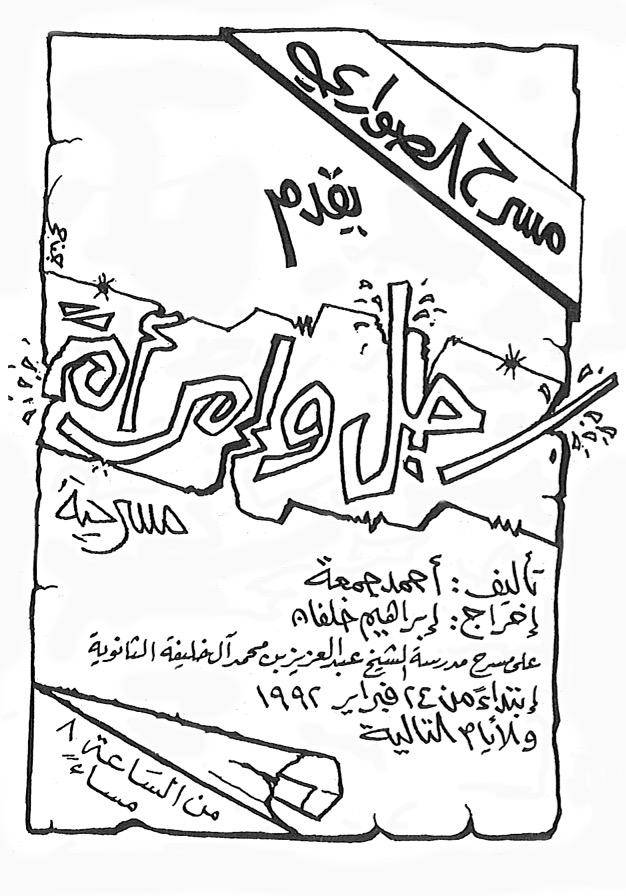 مسرح الصواري
يقدم
رجل وإمرأة
مسرحية
تأليف: أحمد جمعة
إخراج: إبراهيم خلفان
على مسرح مدرسة الشيخ عبدالعزيز بن محمد آل خليفة الثانوية
إبتداءً من ٢٤ فبراير ١٩٩٢
والأيام التالية
من السَاعة ٨
مساءً